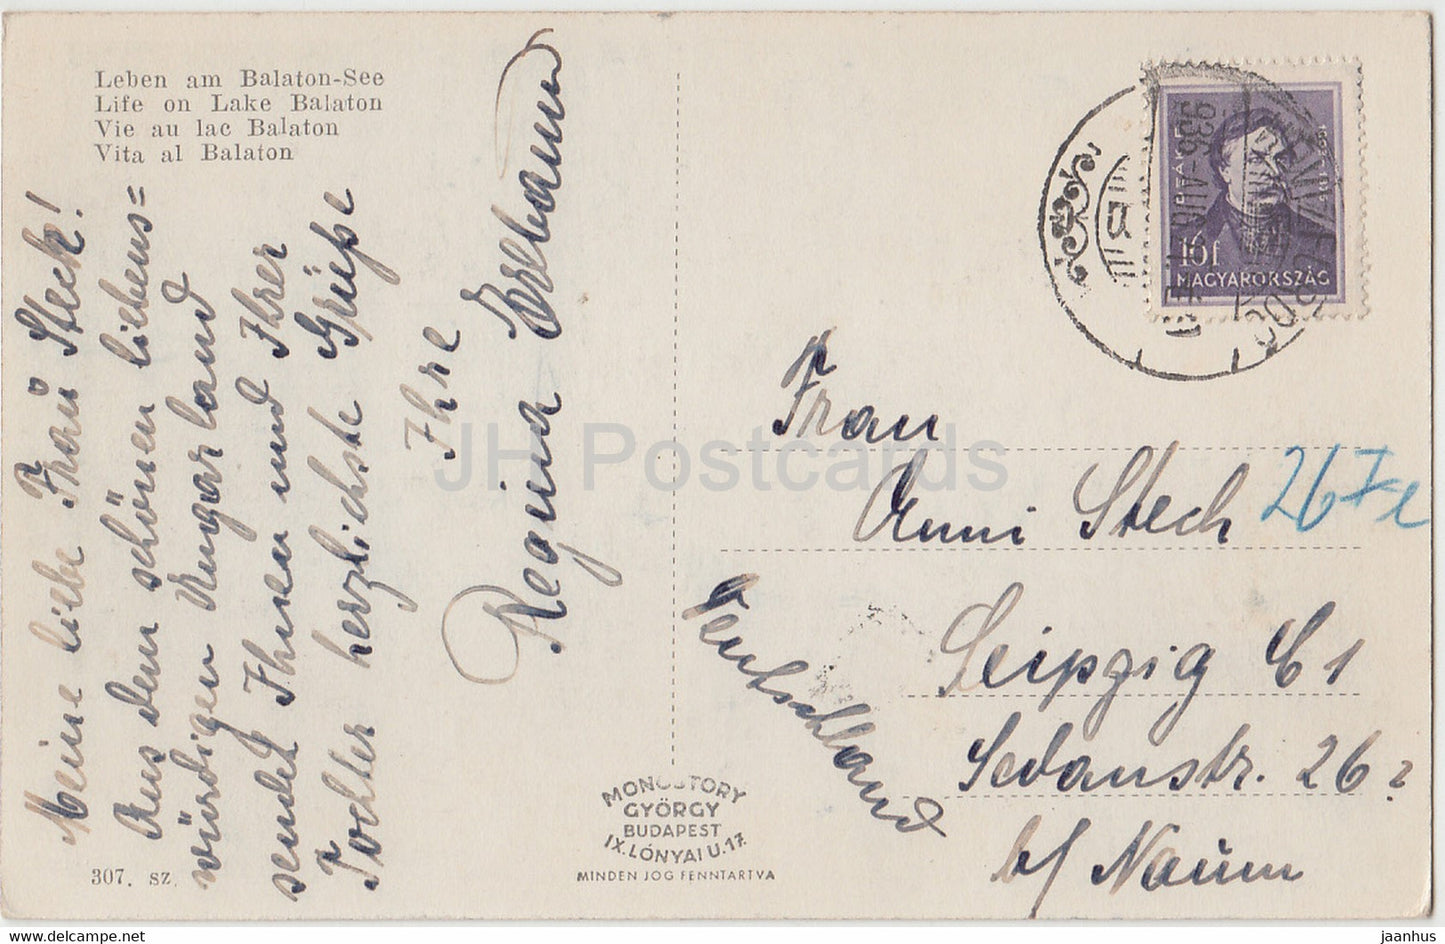 Leben am Balaton-See
Life on Lake Balaton
Vie au lac Balaton
Vita al Balaton
Meine liebe Frau Steck!
Aus dem schönen liebens=
würdigen Ungarland
sendet Ihnen und Ihrer
Tochter herzlichste Grüße
Ihre
Regina
307. sz.
MONOSTORY
GYÖRGY
BUDAPEST
IX. LÓNYAI U. 17.
MINDEN JOG FENNTARTVA
16 f
MAGYARORSZÁG
Frau
Anni Stech
Leipzig C1
Sedanstr. 26
b/ Naum
Deutschland
JH Postcards
jaanhus